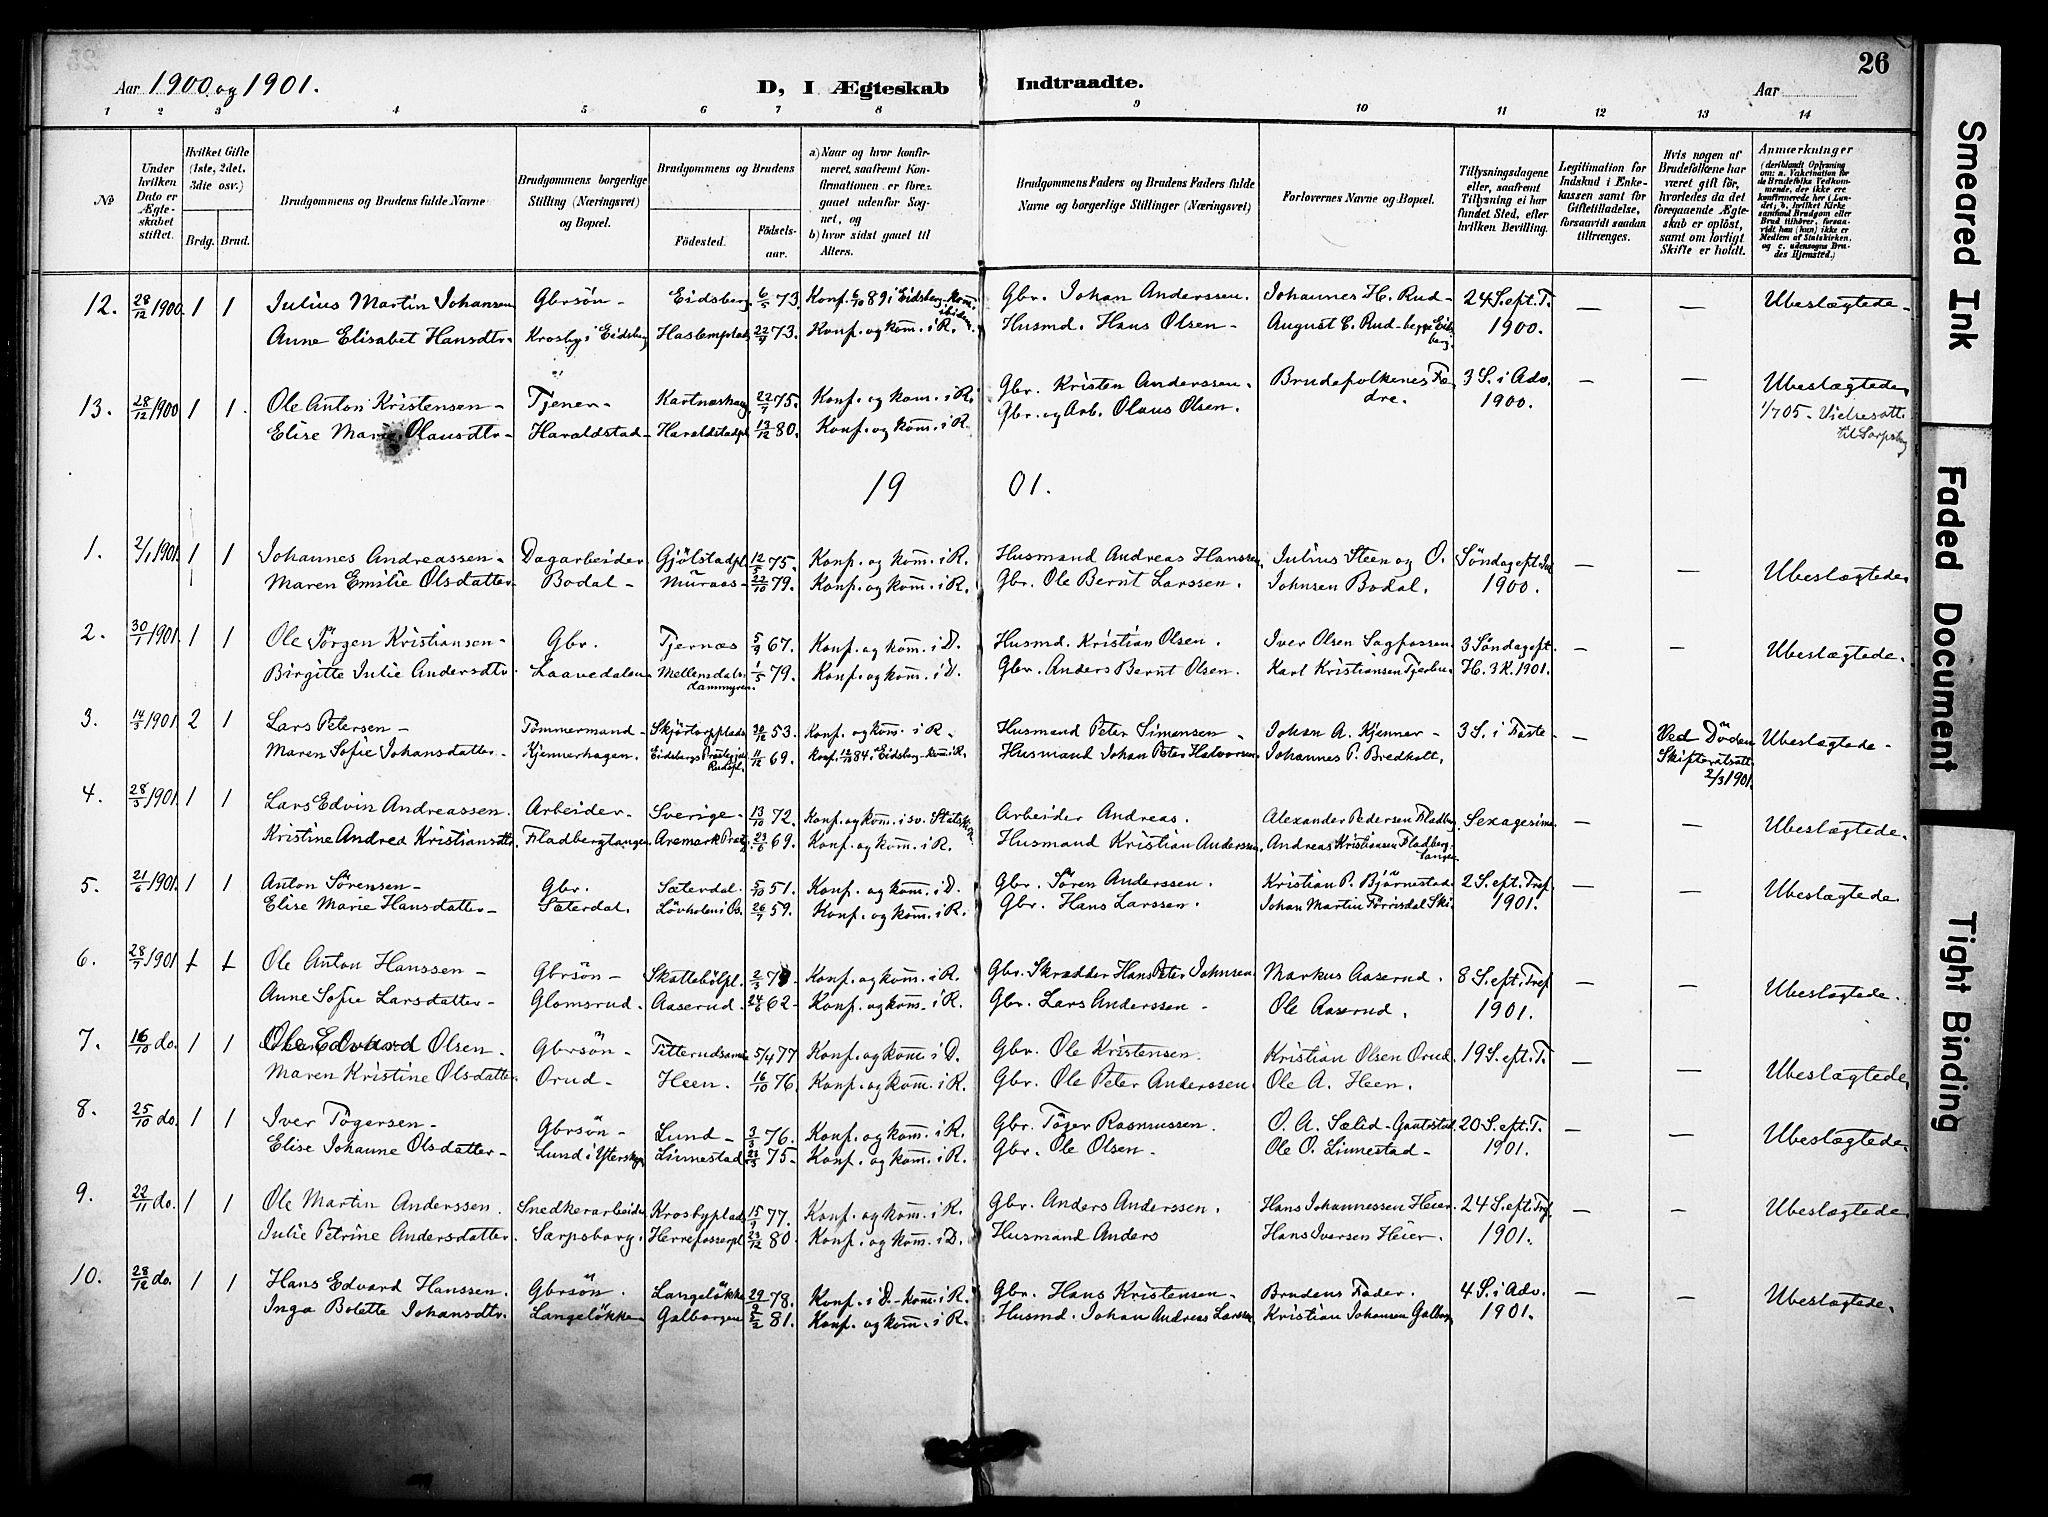 26
Aar 1900 og 1901.
D, I Ægteskab Indtraadte.
Aar
1 2 3 4 5 6 7 8 9 10 11 12 13 14
No
Under hvilken Dato er Ægteskabet stiftet.
Hvilket Gifte (1ste, 2det, 3die osv.)
Brdg. Brud.
Brudgommens og Brudens fulde Navne
Brudgommens borgerlige Stilling (Næringsvei) og Bopæl.
Brudgommens og Brudens
Födested.
Födselsaar.
a) Naar og hvor konfirmeret, saafremt Konfirmationen er foregaaet udenfor Sognet, og
b) hvor sidst gaaet til Alters.
Brudgommens Faders og Brudens Faders fulde Navne og borgerlige Stillinger (Næringsvei)
Forlovernes Navne og Bopæl.
Tillysningsdagene eller, saafremt Tillysning ei har fundet Sted, efter hvilken Bevilling.
Legitimation for Indskud i Enkekassen samt for Giftetilladelse, forsaavidt saadan tiltrænges.
Hvis nogen af Brudefolkene har været gift för, hvorledes da det foregaaende Ægteskab er oplöst, samt om lovligt Skifte er holdt.
Anmærkninger
12. 28/12 1900. 1 1 Julius Martin Johansen Gbrsön - Eidsberg 6/5 73. Konf. 6/10 89 i Eidsberg - kom. Gbr. Johan Anderssen. Johannes H. Rud - 24 S. eft. T. — — Ubeslægtede -
Anne Elisabet Hansdtr. Krosby i Eidsberg 22/9 73. Konf. og kom. i R. Husmd. Hans Olsen - August E. Rud - begge Eidsberg. 1900.
13. 28/12 1900 1 1. Ole Anton Kristensen - Tjener - 22/7 75. Konf. og kom. i R. Gbr. Kristen Anderssen. Brudefolkenes Fædre. 3 S. i Adv. 1900. — — Ubeslægtede
Elise Marie Olausdtr - Haraldstad - Haraldstadpl. 13/12 80. Konf. og kom. i R. Gbr. og Arb. Olaus Olsen. 1/7 05 - til Sarpsborg
19 01.
1. 2/1 1901. 1 1 Johannes Andreassen - Dagarbeider Gjölstadpl. 12/5 75. Konf. og kom. i R. Husmand Andreas Hanssen, Julius Steen og O. Söndag eft. Jul — — Ubeslægtede
Maren Emilie Olsdatter Bodal - Muraas - 22/10 79. Konf. og kom. i R. Gbr. Ole Bernt Larssen. Johnsen Bodal. 1900.
2. 30/1 1901. 1 1 Ole Jörgen Kristiansen - Gbr. Tjernæs 5/9 67. Konf. og kom. i D. Husmd. Kristian Olsen. Iver Olsen Sagfossen 3 Söndag eft. — — Ubeslægtede.
Birgitte Julie Andersdtr. Laavedalen - 1/5 79. Konf. og kom. i D. Gbr. Anders Bernt Olsen. Karl Kristiansen H. 3 K. 1901.
3. 14/3 1901. 2 1 Lars Petersen - Tömmermand - Skjörtorpplads 53. Konf. og kom. i R - Husmand Peter Simensen - Johan A. Kjenner - 3 S. i Faste — Ved Döden Ubeslægtede -
Maren Sofie Johansdatter - Kjennerhagen. Eidsbergs Prestegjeld Rudspl. 11/12 69. Konf. 84 i Eidsberg - kom. i R. Husmand Johan Peter Halvorsen Johannes P. Bredholt. 2/3 1901.
4. 28/3 1901. 1 1 Lars Edvin Andreassen. Arbeider - Sverige - 13/10 72. Konf. og kom. i sv. Statsk. Arbeider Andreas. Alexander Pedersen Fladberg. Sexagesima — — Ubeslægtede.
Kristine Andrea Kristiansdtr. Fladbergtangen. Aremark Præstg. 23/6 69. Konf. og kom. i R. Husmand Kristian Anderssen. Andreas Kristiansen Fladbergtangen
5. 21/6 1901. 1 1 Anton Sörensen - Gbr. Sæterdal. 5/10 51. Konf. og kom. i D. Gbr. Sören Anderssen. Kristian P. Björnestad. 2 S. eft. Tref. — — Ubeslægtede
Elise Marie Hansdatter - Sæterdal. 26/7 59. Konf. og kom. i R. Gbr. Hans Larssen. Johan Martin 1901.
6. 28/7 1901 1 1 Ole Anton Hanssen - Gbrsön - Skattebölpl. 2/3 Konf. og kom. i R. Gbr. Skrædder Hans Peter Johnsen Markus Aaserud. 8 S. eft. Tref — — Ubeslægtede.
Anne Sofie Larsdatter - Glomsrud. Aaserud. 24/6 62 - Konf. og kom. i R. Gbr. Lars Anderssen - Ole Aaserud. 1901.
7. 16/10 do. 1 1 Ole Edvard Olsen. Gbrsön - 5/4 77 Konf. og kom i D. Gbr. Ole Kristensen. Kristian Olsen Orud. 19 S. eft. T. — — Ubeslægtede
Maren Kristine Olsdatter. Orud - Heen. 16/10 76. Konf. og kom. i R. Gbr. Ole Peter Anderssen. Ole A. Heen.
8. 25/10 do. 1 1 Iver Tögersen - Gbrsön - Lund - 3/3 76. Konf. og kom. i R. Gbr. Töger Rasmussen. O. A. Sælid - 20 S. eft. T. — — Ubeslægtede
Elise Johanne Olsdatter - Lund i Linnestad 23/5 75 - Konf. og kom. i R. Gbr. Ole Olsen - Ole O. Linnestad - 1901.
9. 22/11 do. 1 1 Ole Martin Anderssen. Snedkerarbeider Krosbyplads 15/9 77. Konf. og kom. i R. Gbr. Anders Anderssen. Hans Johannessen Heier. 24 S. eft. Tref. — — Ubeslægtede
Julie Petrine Andersdatter. Sarpsborg. Herrefosserpl. 23/12 80. Konf. og kom. i D. Husmand Anders Hans Iversen Heier. 1901.
10. 28/12 do. 1 1 Hans Edvard Hanssen. Gbrsön. Langelökke 78. Konf. i D - kom. i R. Gbr. Hans Kristensen - Brudens Fader. 4 S. i Adv. — — Ubeslægtede.
Inga Bolette Johansdtr. Langelökke 2/2 81. Konf. og kom. i R. Husmd. Johan Andreas Larssen Kristian Johansen 1901.
Smeared Ink
Faded Document
Tight Binding